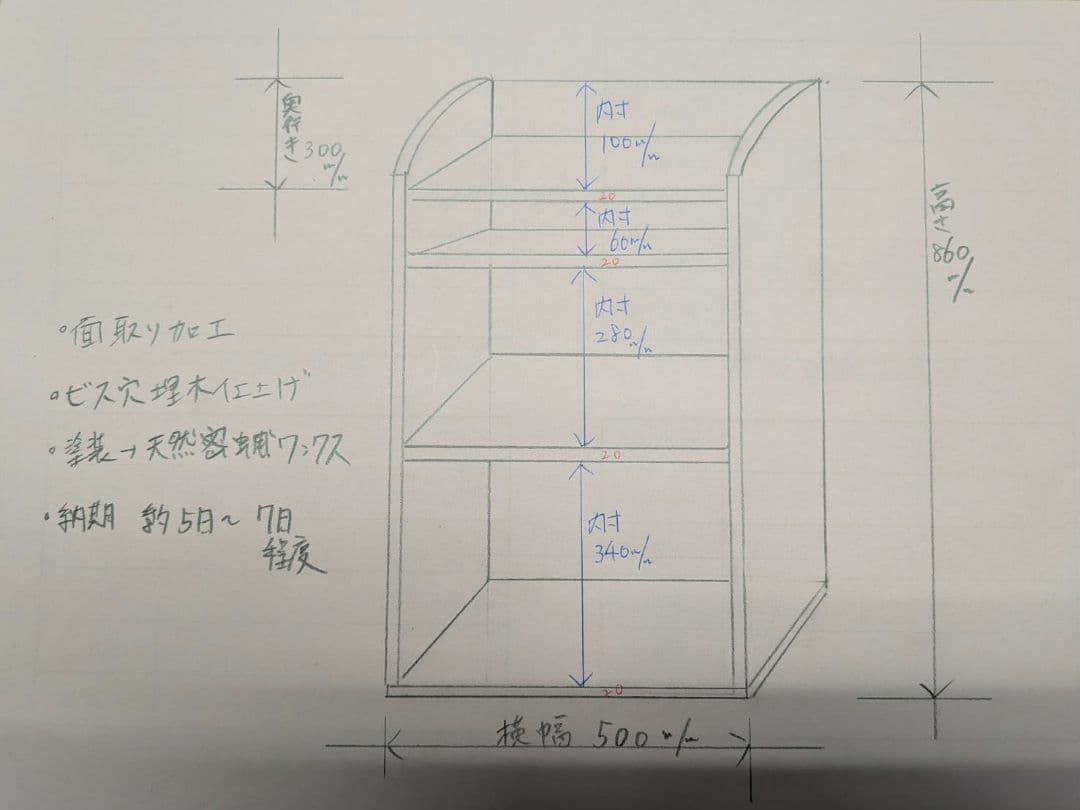 奥行き
300m/m
内寸
100m/m
20
内寸
60m/m
20
内寸
280m/m
20
内寸
340m/m
20
高さ
860
m/m
横幅 500m/m
・面取り加工
・ビス穴埋木仕上げ
・塗装→天然蜜蝋ワックス
・納期 約5日~7日
程度